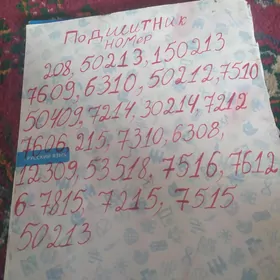 Подписитник
номер
208, 50213, 150213
7609, 6310, 50212, 7510
50409, 7214, 30214, 7212
7606, 215, 7310, 6308,
12309, 53518, 7516, 7612
6-7815, 7215, 7515
50213